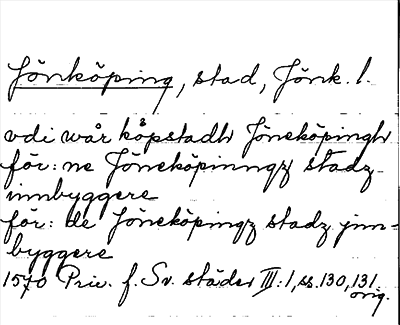 Jönköping, stad, Jönk. l.
vdi wår köpstadh Jöneköpingh
för:ne Jöneköpinngz stadz
innbyggere
för:de Jöneköpingz stadz jnn-
byggere
1570 Priv. f. Sv. städer III:1, ss. 130, 131
orig.